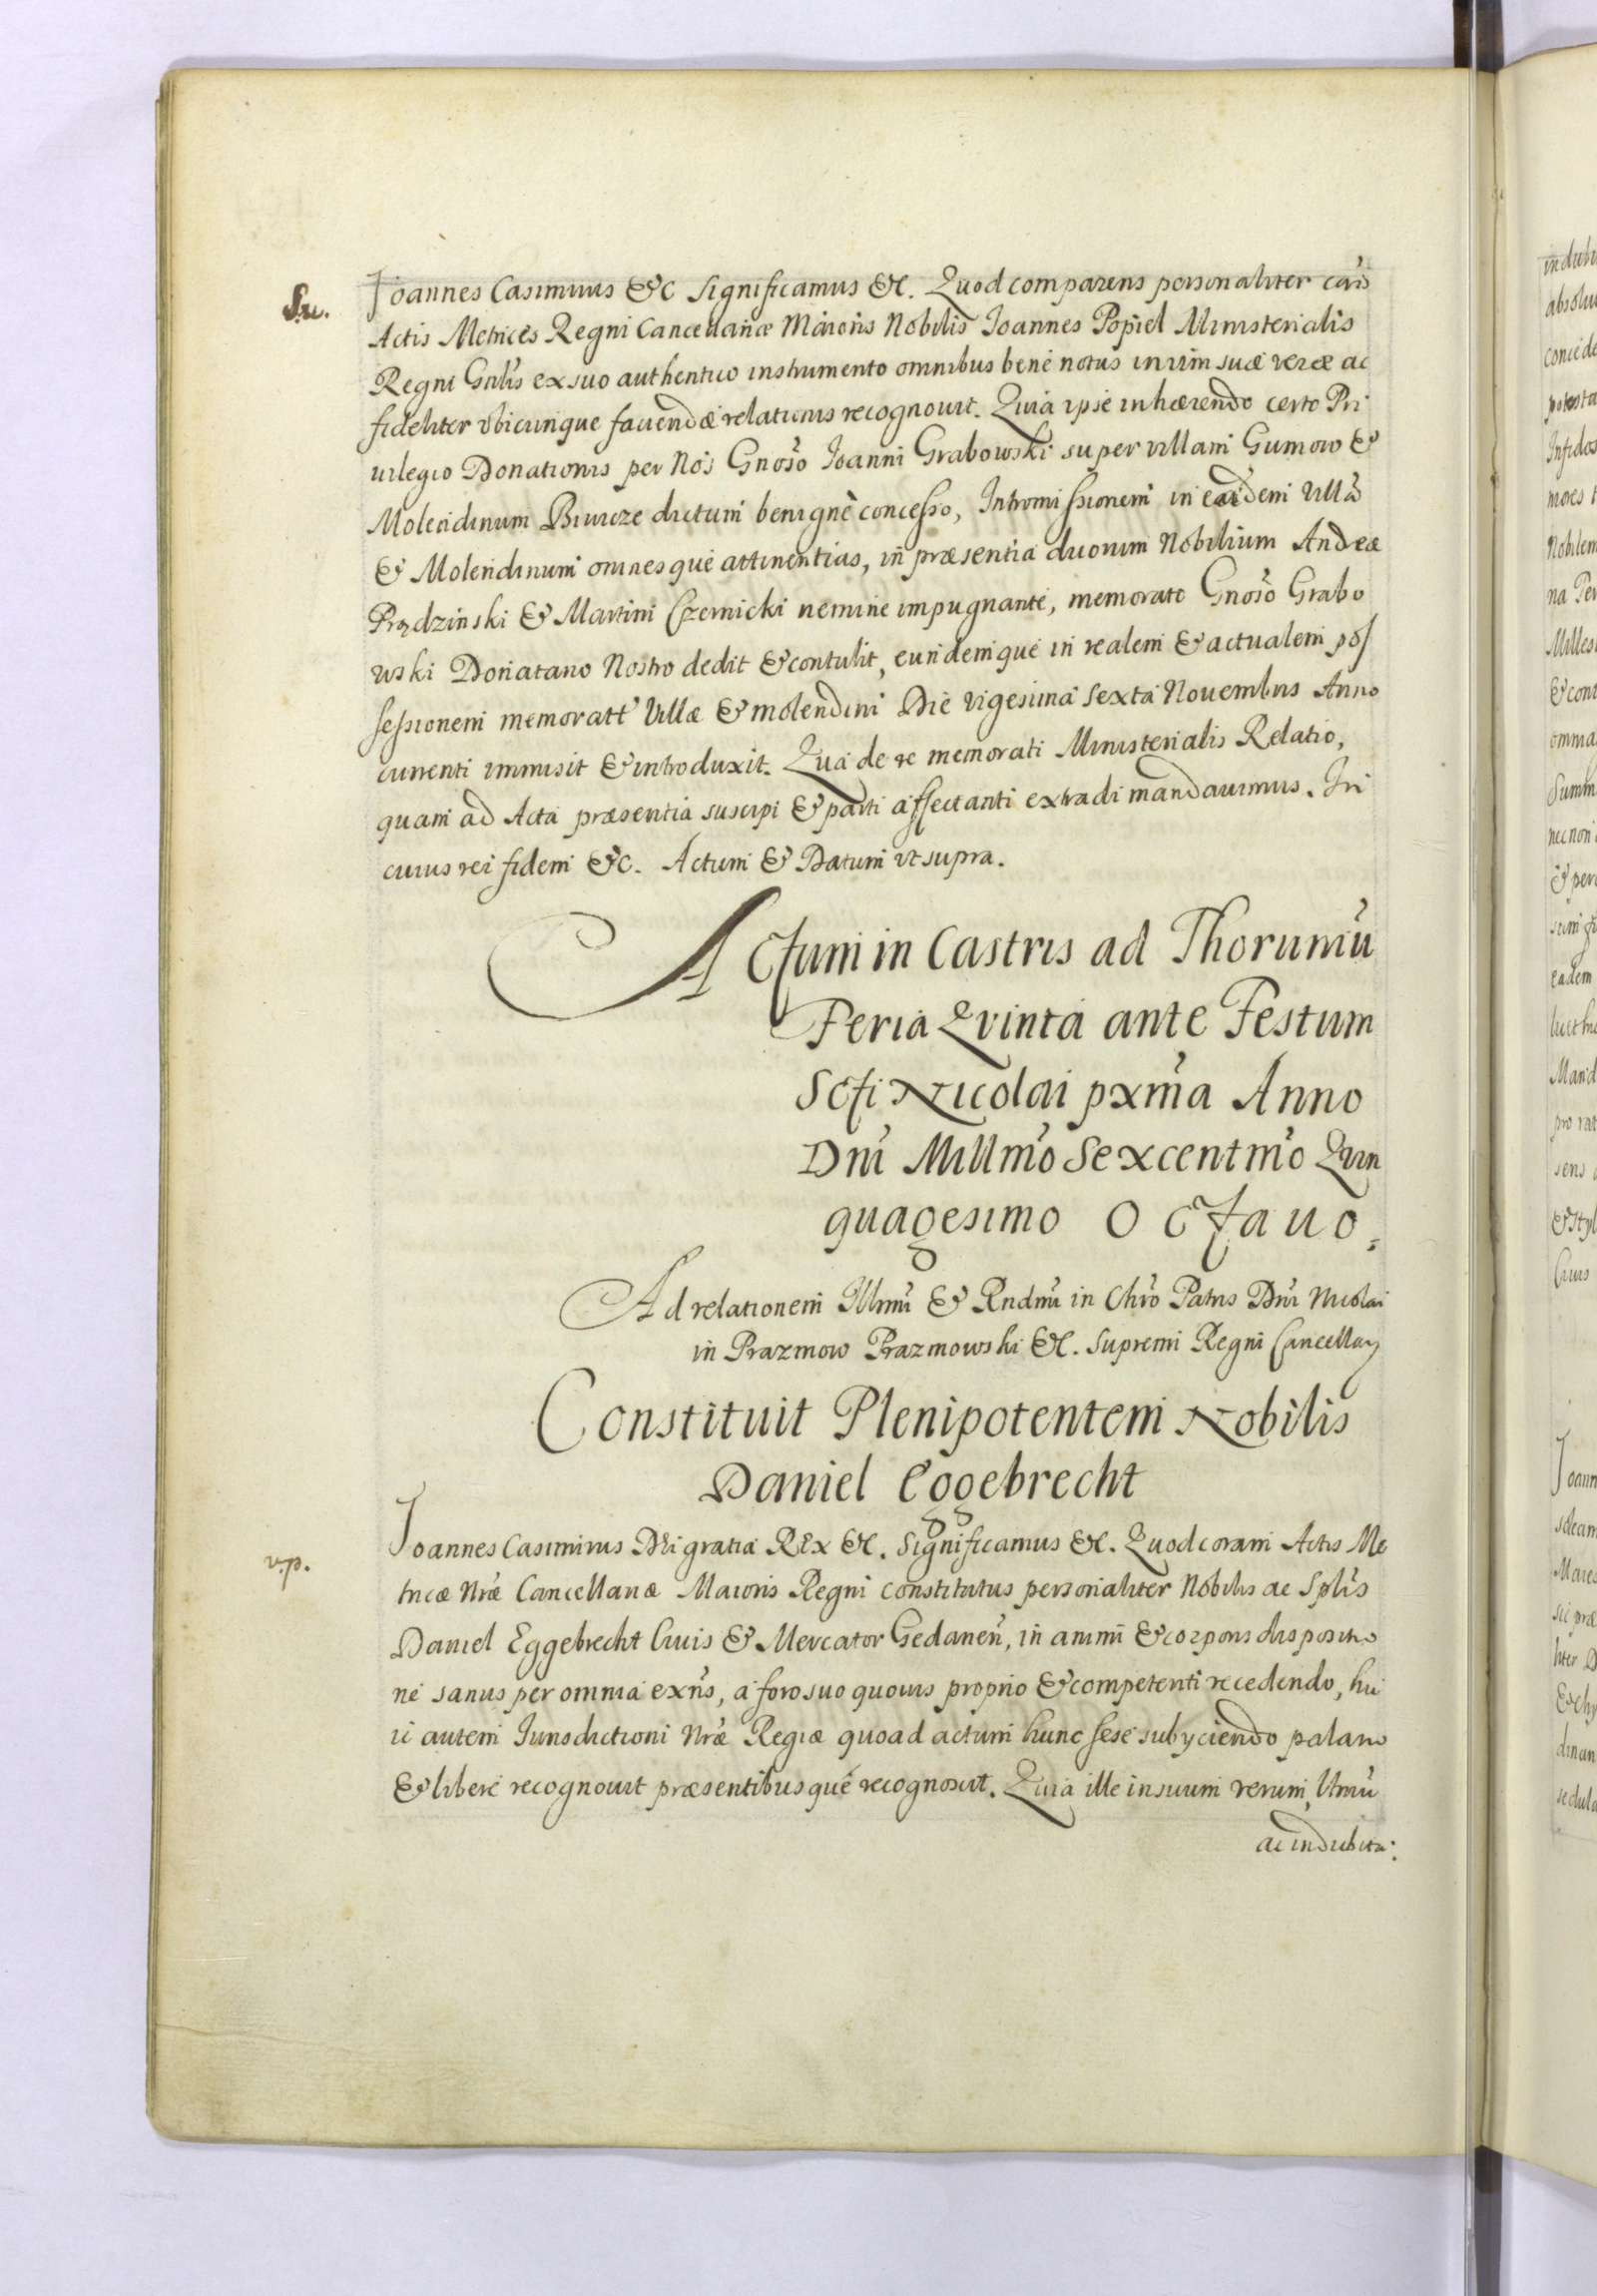 Joannes Casimirus &c Significamus &c. Quod comparens personaliter corã
Actis Metrices Regni Cancellariæ Maioris Nobilis Joannes Popiel Ministerialis
Regni Gnlis ex suo authentico instrumento omnibus bene notus in vim suæ veræ ac
fideliter vbicunque faciendæ relationis recognouit. Quia ipse inhærendo certo Pri
uilegio Donationis per Nos Gnoso Joanni Grabowski super villam Gumowo &
Molendinum Biuicze dictum benignè concesso, Intromissionem in eandem Villã
& Molendinum omnesque attinentias, in præsentia duorum Nobilium Andreæ
Prądzinski & Martini Czernicki nemine impugnante, memorato Gnoso Grabo
wski Donatario Nostro dedit & contulit, eundemque in realem & actualem pos
sessionem memoratt Villæ & molendini Die vigesima sexta Nouembris Anno
currenti immisit & introduxit. Qua de re memorati Ministerialis Relatio,
quam ad Acta præsentia suscipi & parti affectanti extradi mandauimus. In
cuius rei fidem &c. Actum & Datum vt supra.
Actum in Castris ad Thorumũ
Feria Qvinta ante Festum
Scti Nicolai pxma Anno
Dni Millmo Sexcentmo Quin
quagesimo Octauo.
Ad relationem Illmi & Rndmi in Chro Patris Dni Nicolai
in Prazmow Prazmowski &c. Supremi Regni Cancellarÿ
Constituit Plenipotentem Nobilis
Daniel Eggebrecht
v.p.
Joannes Casimirus DEi gratia REx &c. Significamus &c. Quod coram Actis Me
tricæ Nræ Cancellariæ Maioris Regni constitutus personaliter Nobilis ac Splis
Daniel Eggebrecht Ciuis & Mercator Gedanen, in animi & corporis dispositio
ne sanus per omnia exns, a foro suo quouis proprio & competenti recedendo, hu
ic autem Jurisdictioni Nræ Regiæ quoad actum hunc sese subÿciendo palam
& libere recognouit præsentibusque recognoscit. Quia ille in suum verum, Vnicũ
ac indubita: